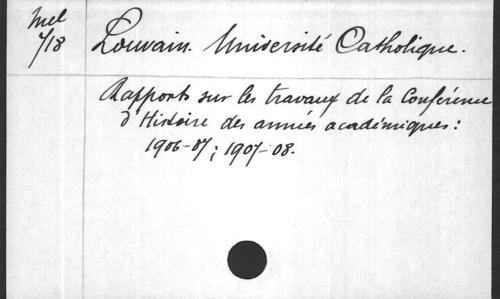 Mel
718
Louvain. Université Catholique.
Rapports sur les travaux de la Conférence
d'Histoire des années académiques:
1906-07; 1907-08.